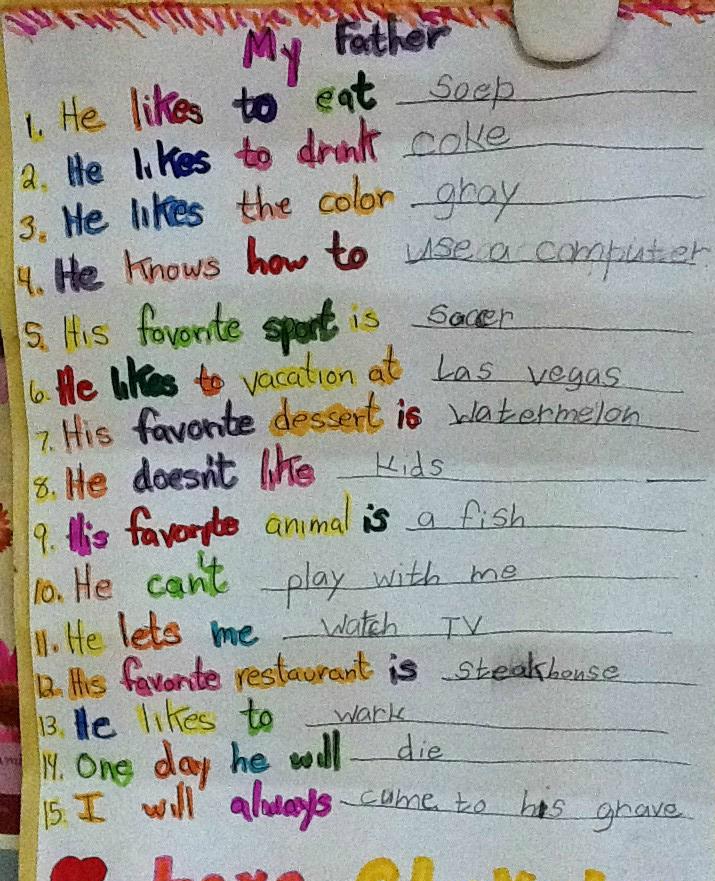 My Father
1. He likes to eat soep
2. He likes to drink coke
3. He likes the color gray
4. He knows how to use a computer
5. His favorite sport is soccer
6. He likes to vacation at Las vegas
7. His favorite dessert is watermelon
8. He doesn't like kids
9. His favorite animal is a fish
10. He can't play with me
11. He lets me watch TV
12. His favorite restaurant is steakhouse
13. He likes to wark
14. One day he will die
15. I will always came to his grave